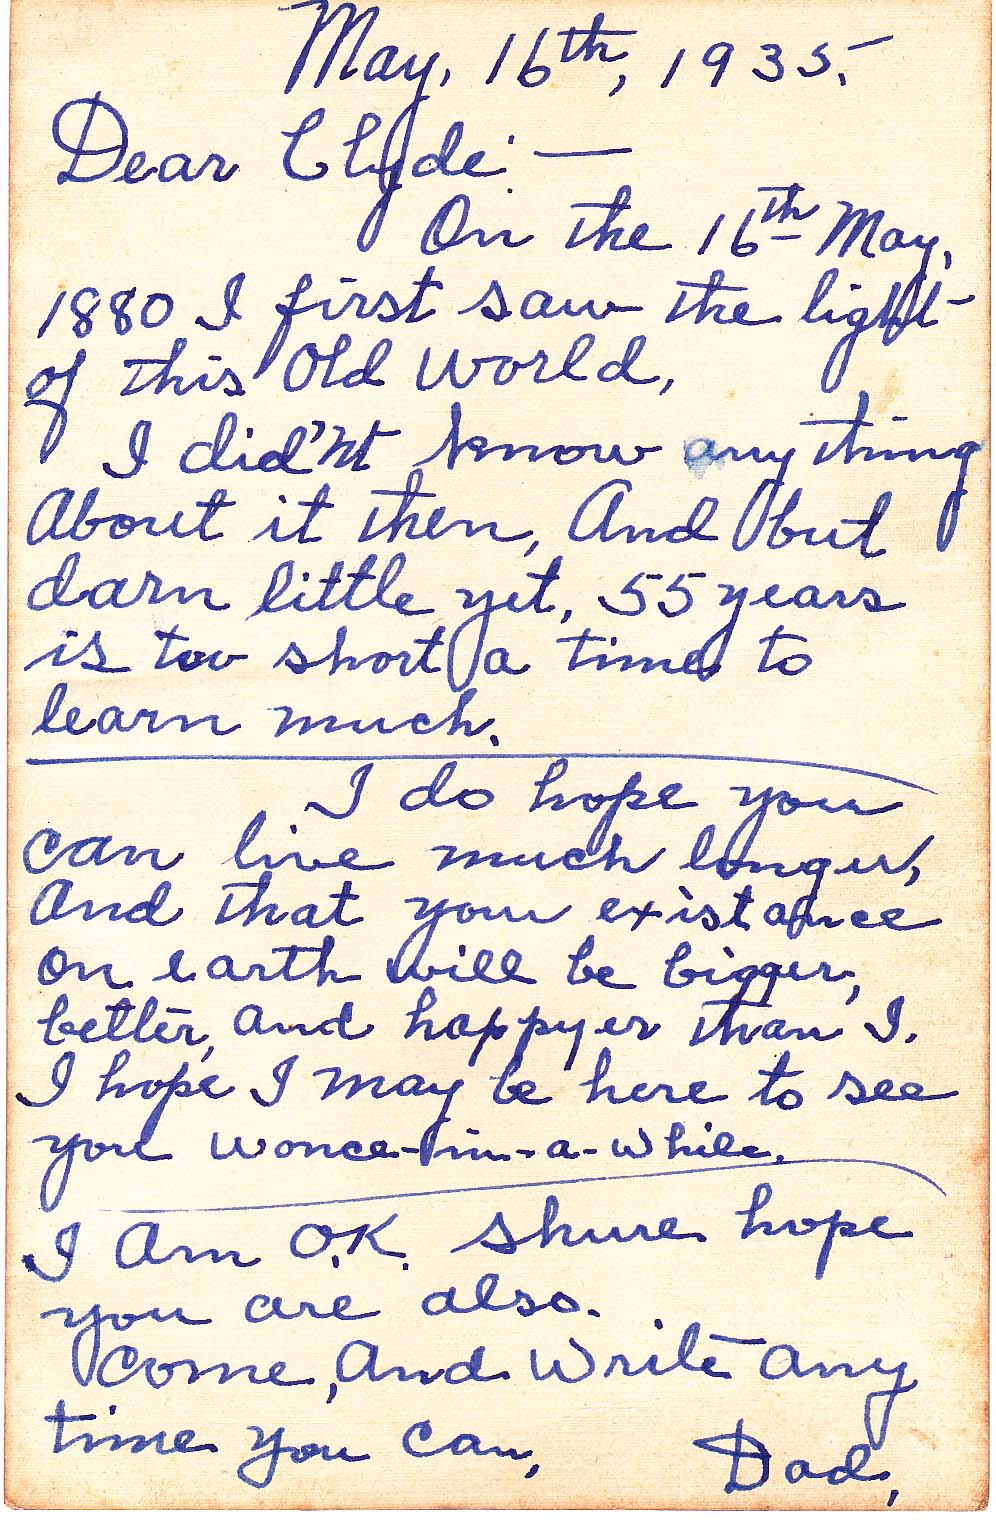 May, 16th, 1935.
Dear Clyde: —
On the 16th May,
1880 I first saw the light
of this Old World,
I did'nt know any thing
About it then, And but
darn little yet, 55 years
is too short a time to
learn much.
I do hope you
can live much longer,
And that your existance
on earth will be bigger,
better, and happyer than I.
I hope I may be here to see
you wonce-in-a-while.
I Am O.K. shure hope
you are also.
Come, And Write any
time you can,
Dad,